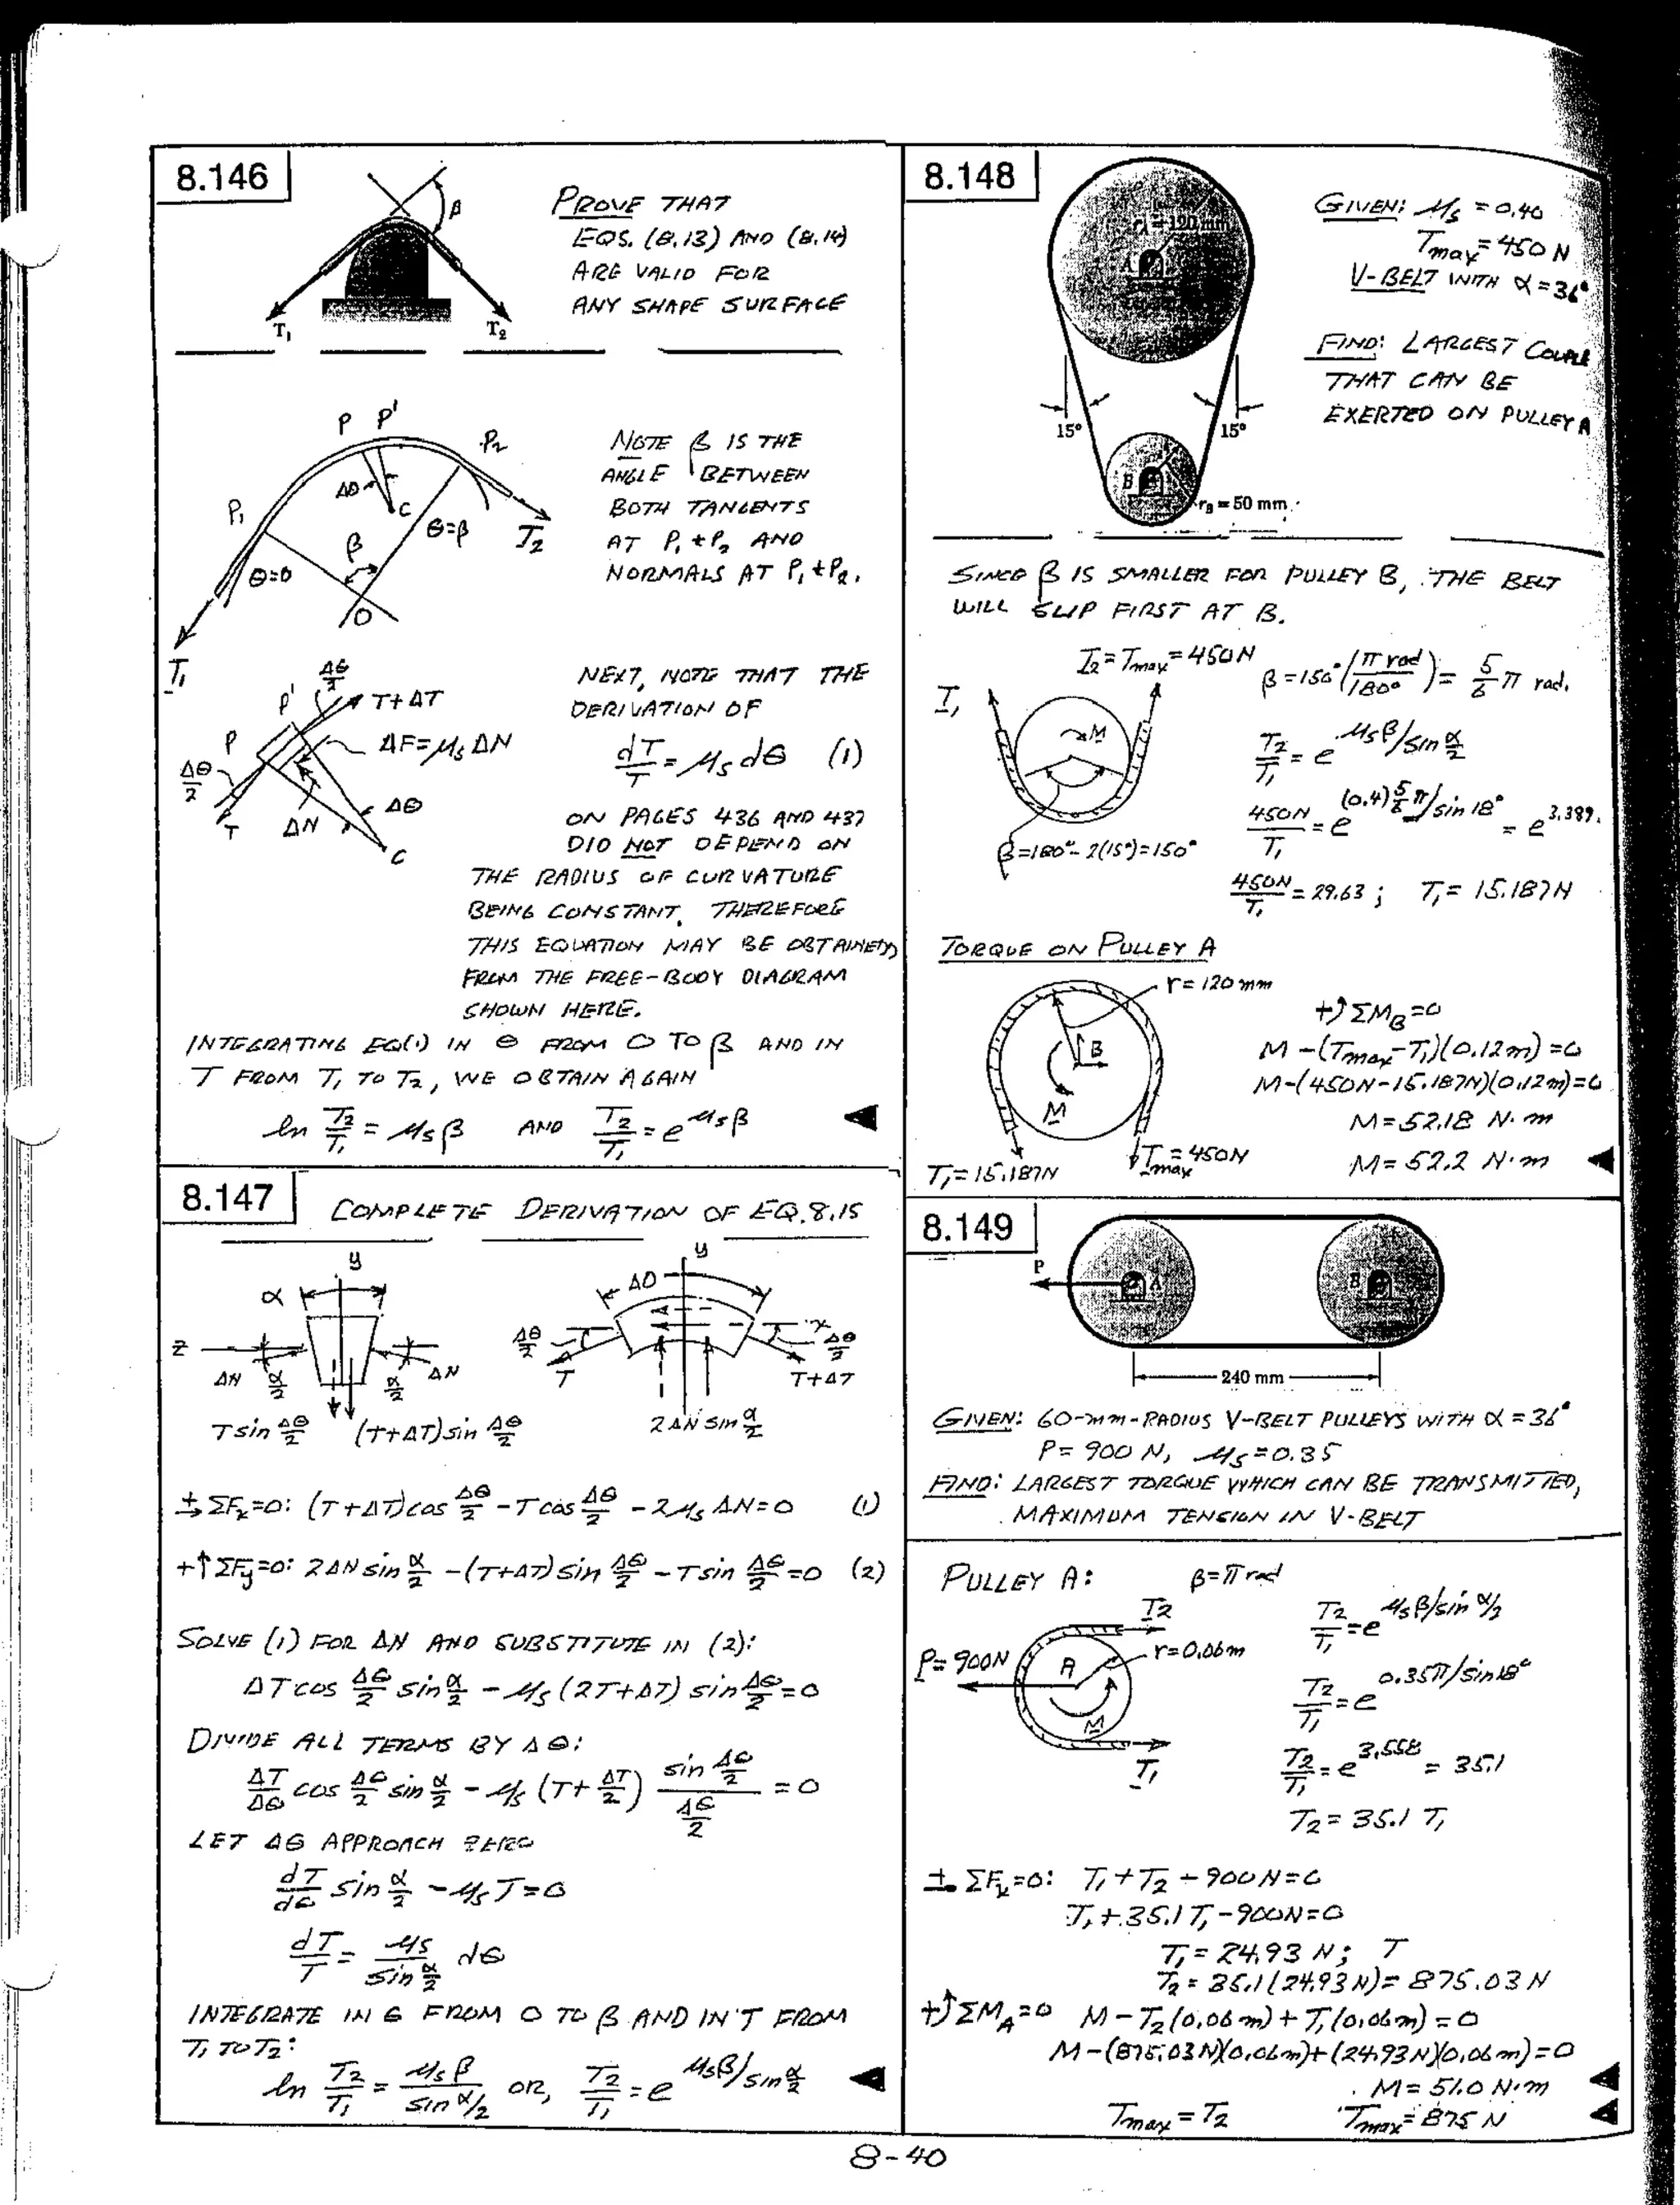 8.146
β
T₁
T₂
PROVE THAT
EQS. (8.13) AND (8.14)
ARE VALID FOR
ANY SHAPE SURFACE
P P'
P₂
P₁
Δθ
C
β
θ=β
θ=0
O
T₂
T₁
NOTE β IS THE
ANGLE BETWEEN
BOTH TANGENTS
AT P₁ + P₂ AND
NORMALS AT P₁ + P₂.
Δθ/2
P'
T+ΔT
P
ΔF=μsΔN
Δθ/2
T
ΔN
Δθ
C
NEXT, NOTE THAT THE
DERIVATION OF
dT/T = μs dθ (1)
ON PAGES 436 AND 437
DID NOT DEPEND ON
THE RADIUS OF CURVATURE
BEING CONSTANT. THEREFORE
THIS EQUATION MAY BE OBTAINED
FROM THE FREE-BODY DIAGRAM
SHOWN HERE.
INTEGRATING EQ(1) IN θ FROM 0 TO β AND IN
T FROM T₁ TO T₂, WE OBTAIN AGAIN
ln T₂/T₁ = μsβ AND T₂/T₁ = e^μsβ
8.147
COMPLETE DERIVATION OF EQ.8.15
y
α
z
ΔN
α/2
α/2
ΔN
T sin Δθ/2
(T+ΔT) sin Δθ/2
y
Δθ
x
Δθ/2
Δθ/2
T
T+ΔT
2ΔN sin α/2
ΣFx=0: (T+ΔT)cos Δθ/2 - T cos Δθ/2 - 2μs ΔN=0 (1)
+↑ΣFy=0: 2ΔN sin α/2 - (T+ΔT) sin Δθ/2 - T sin Δθ/2 =0 (2)
SOLVE (1) FOR ΔN AND SUBSTITUTE IN (2):
ΔT cos Δθ/2 sin α/2 - μs (2T+ΔT) sin Δθ/2 =0
DIVIDE ALL TERMS BY Δθ:
ΔT/Δθ cos Δθ/2 sin α/2 - μs (T+ ΔT/2) sin Δθ/2 / Δθ/2 = 0
LET Δθ APPROACH ZERO
dT/dθ sin α/2 - μsT=0
dT/T = μs/sin α/2 dθ
INTEGRATE IN θ FROM 0 TO β AND IN T FROM
T₁ TO T₂:
ln T₂/T₁ = μsβ/sin α/2 OR, T₂/T₁ = e^μsβ/sin α/2
8.148
rA = 120 mm
A
15°
15°
B
rB = 50 mm
GIVEN: μs = 0.40
Tmax = 450 N
V-BELT WITH α = 36°
FIND: LARGEST COUPLE
THAT CAN BE
EXERTED ON PULLEY A
SINCE β IS SMALLER FOR PULLEY B, THE BELT
WILL SLIP FIRST AT B.
T₂=Tmax=450N
T₁
M
β=180°-2(15°)=150°
β=150°(π rad/180°)= 5/6 π rad.
T₂/T₁ = e^μsβ/sin α/2
450N/T₁ = e^(0.4)5/6π/sin 18° = e^3.389.
450N/T₁ = 29.63 ; T₁= 15.187N
TORQUE ON PULLEY A
r=120mm
B
M
T₁=15.187N
Tmax=450N
+ΣMB=0
M-(Tmax-T₁)(0.12m)=0
M-(450N-15.187N)(0.12m)=0
M=52.18 N·m
M=52.2 N·m
8.149
P
A
B
240 mm
GIVEN: 60-mm-RADIUS V-BELT PULLEYS WITH α=36°
P= 900 N, μs=0.35
FIND: LARGEST TORQUE WHICH CAN BE TRANSMITTED,
MAXIMUM TENSION IN V-BELT
PULLEY A: β=π rad
T₂
P=900N
A
r=0.06m
M
T₁
T₂/T₁ = e^μsβ/sin α/2
T₂/T₁ = e^0.35π/sin18°
T₂/T₁ = e^3.558 = 35.1
T₂= 35.1 T₁
ΣFx=0: T₁+T₂-900N=0
T₁+35.1T₁-900N=0
T₁= 24.93 N; T
T₂= 35.1(24.93N)= 875.03N
+ΣMA=0 M-T₂(0.06m)+T₁(0.06m)=0
M-(875.03N)(0.06m)+(24.93N)(0.06m)=0
M= 51.0 N·m
Tmax=T₂ Tmax=875 N
8-40